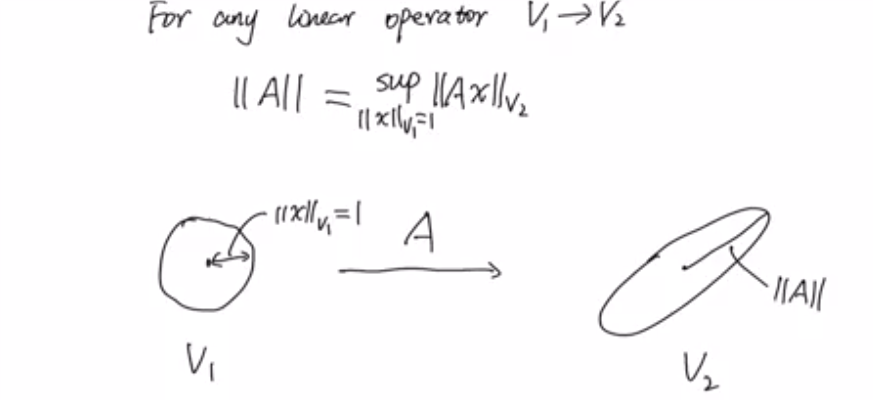 For any linear operator V₁→V₂
||A|| = sup ||Ax||_V₂
||x||_V₁=1
||x||_V₁=1
A
||A||
V₁
V₂